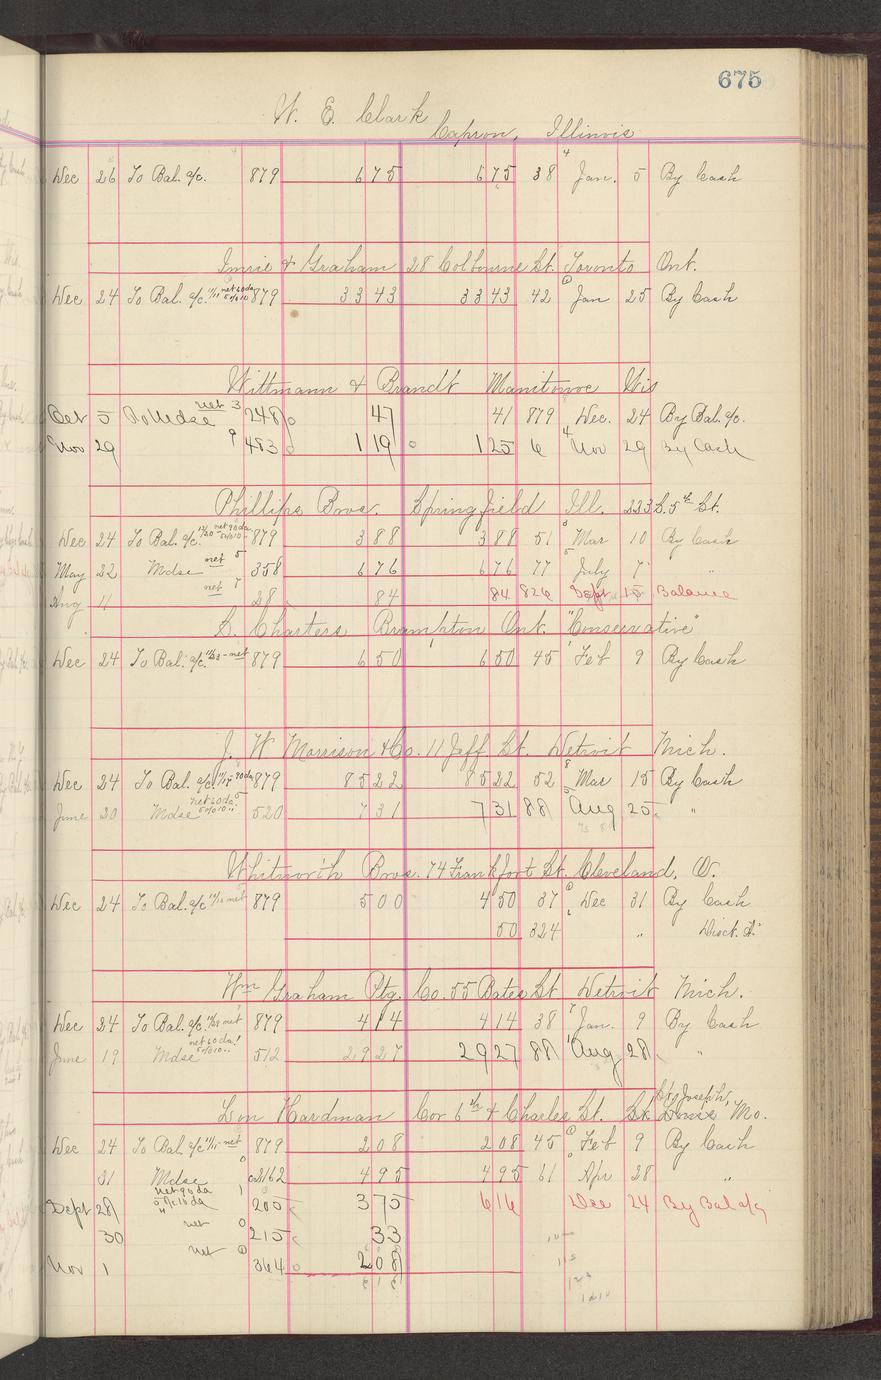 675
W. E. Clark
Capron, Illinois
Dec 26 To Bal. a/c. 879 675 675 38 Jan. 5 By Cash
Imrie & Graham 28 Colbourne St. Toronto Ont.
Dec 24 To Bal. a/c. 879 3343 3343 42 Jan 25 By Cash
Wittmann & Brandt Manitowoc Wis
Oct 5 To Mdse net 3 248 47 41 879 Dec. 24 By Bal. a/c.
Nov 29 9 483 119 125 6 Nov 29 By Cash
Phillips Bros. Springfield Ill. 223 S. 5th St.
Dec 24 To Bal. a/c. 879 388 388 51 Mar 10 By Cash
May 22 Mdse net 5 358 676 676 77 July 7 "
Aug 11 net 7 28 84 84 826 Sept 15 Balance
S. Charters Brampton Ont. "Conservative"
Dec 24 To Bal. a/c. net 879 650 650 45 Feb 9 By Cash
J. W Morrison & Co. 11 Jeff St. Detroit Mich.
Dec 24 To Bal. a/c. 879 8522 8522 52 Mar 15 By Cash
June 20 Mdse net 60 da 520 731 731 88 Aug 25 "
Whitworth Bros. 74 Frankfort St. Cleveland, O.
Dec 24 To Bal. a/c net 879 500 450 37 Dec 31 By Cash
50 324 " Disct.
Wm Graham Ptg. Co. 55 Bates St Detroit Mich.
Dec 24 To Bal. a/c. net 879 414 414 38 Jan. 9 By Cash
June 19 Mdse net 60 da 512 2927 2927 88 Aug 28 "
St. Joseph,
Lon Hardman Cor 6th & Charles St. St. Louis Mo.
Dec 24 To Bal. a/c net 879 208 208 45 Feb 9 By Cash
31 Mdse 495 495 61 Apr 28 "
net 90 da
Sept 28 205 375 616 Dec 24 By Bal a/c
30 net 215 33
Nov 1 net 364 208
616